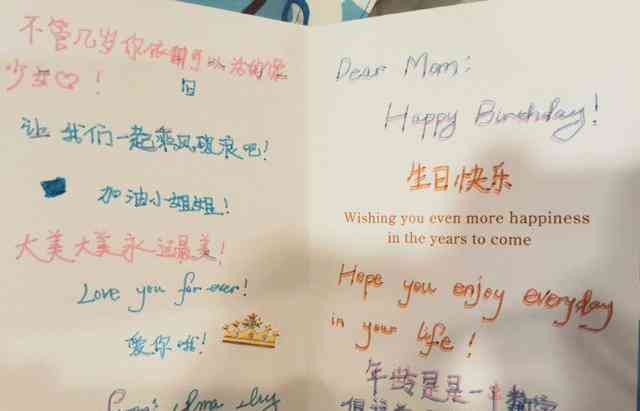 不管几岁你依旧可以活的像
少女♡！
让我们一起乘风破浪吧！
加油小姐姐！
大美大美永远最美！
Love you for ever!
爱你哦！
Dear Mom:
Happy Birthday!
生日快乐
Wishing you even more happiness
in the years to come
Hope you enjoy everyday
in your life!
年龄是是一